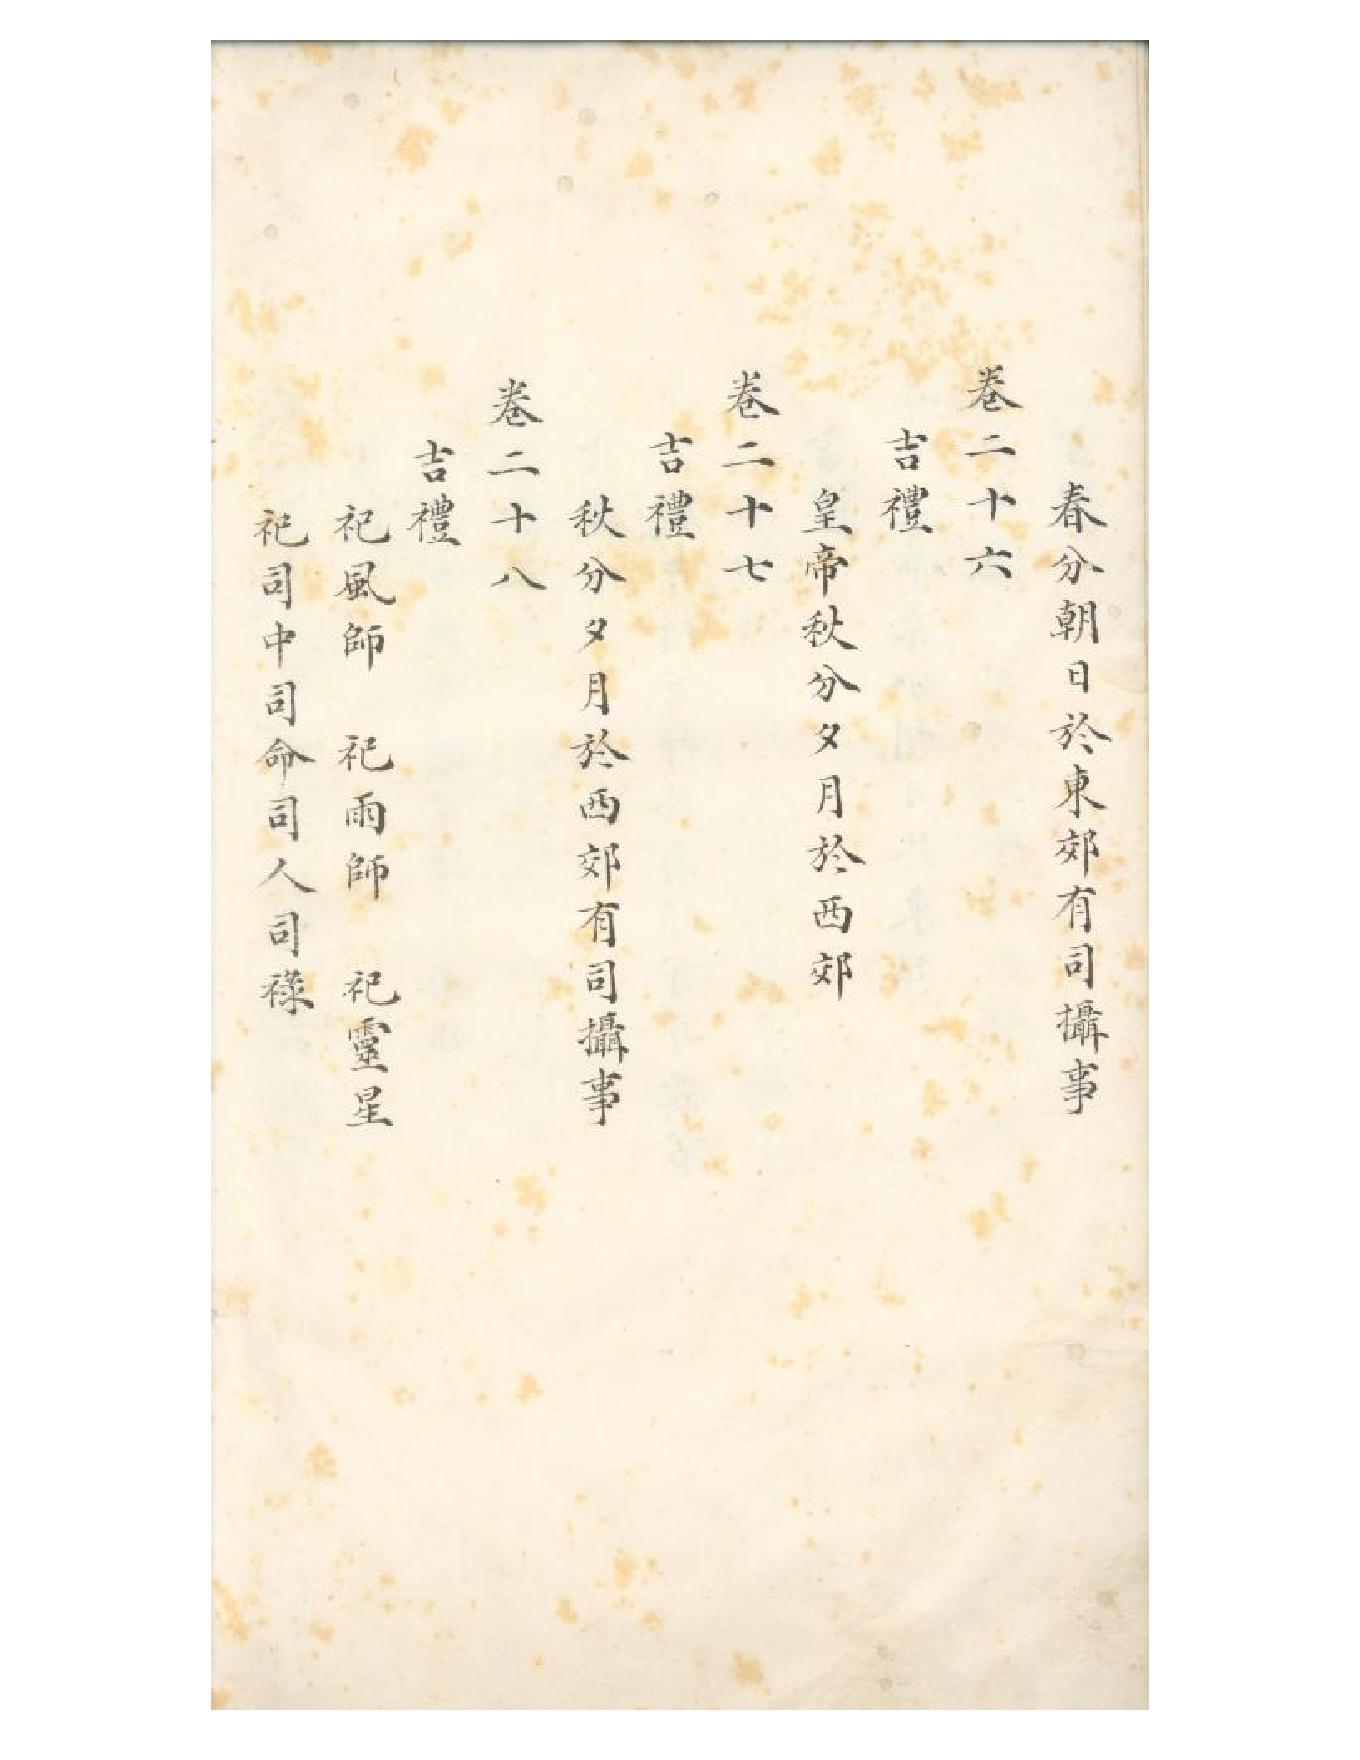 春分朝日於東郊有司攝事
卷二十六
吉禮
皇帝秋分夕月於西郊
卷二十七
吉禮
秋分夕月於西郊有司攝事
卷二十八
吉禮
祀風師　祀雨師　祀靈星
祀司中司命司人司祿